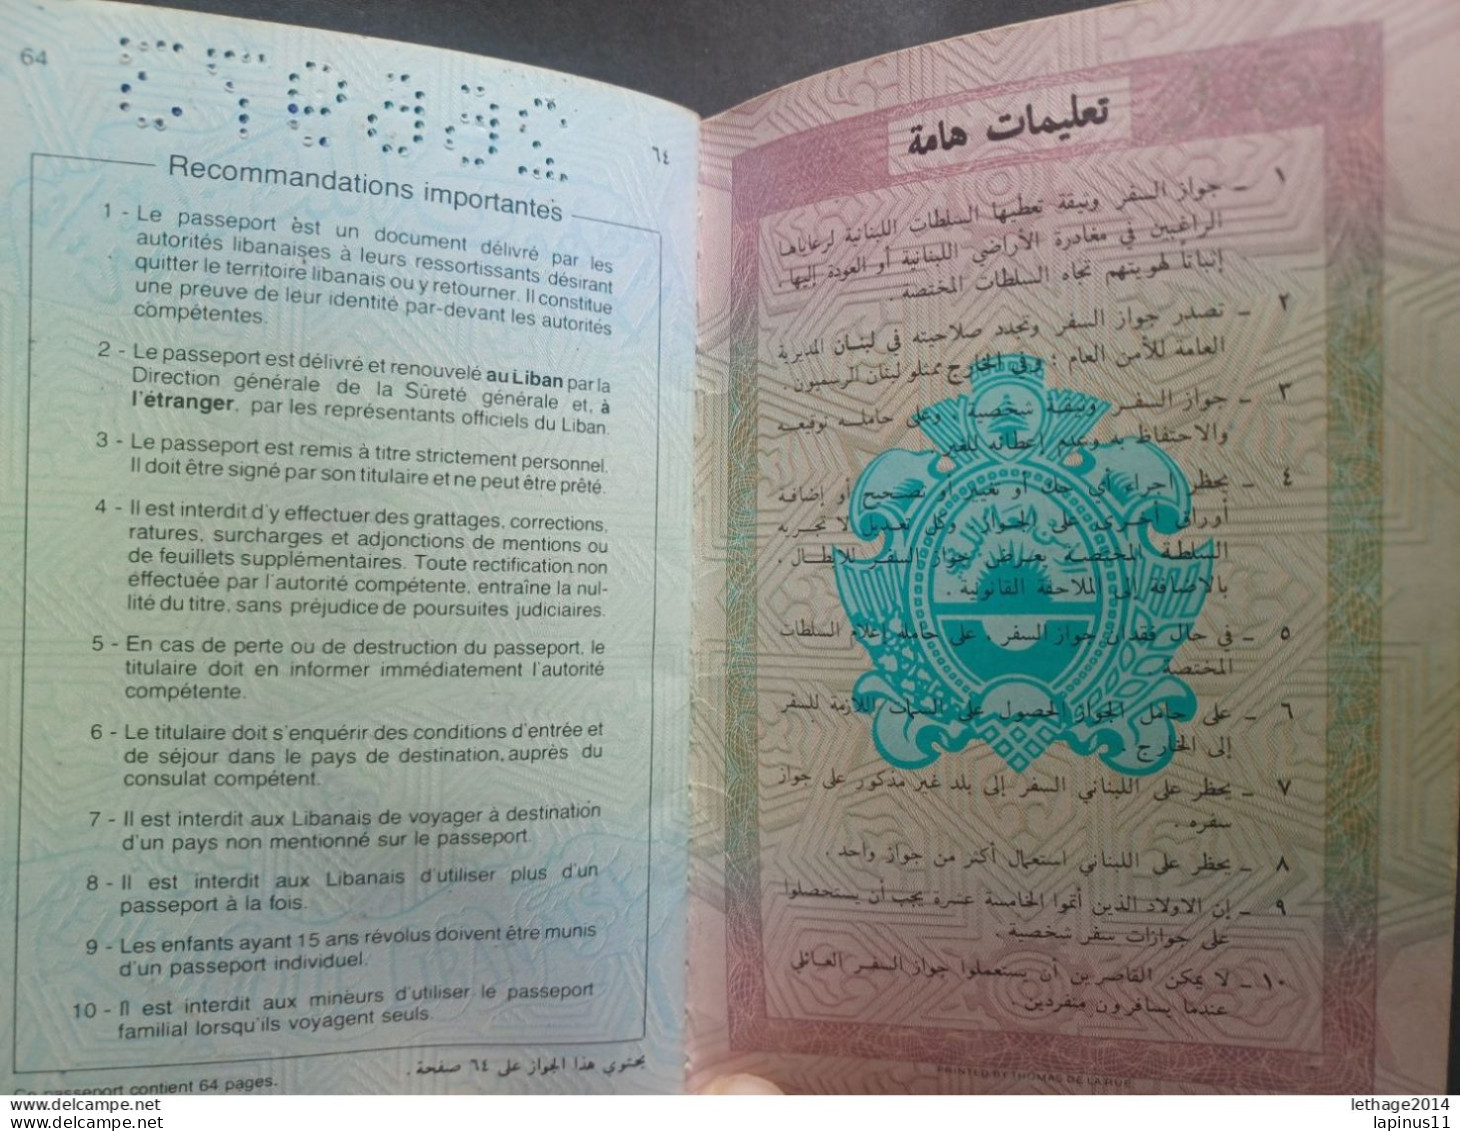 64
٦٤
Recommandations importantes
1 - Le passeport est un document délivré par les
autorités libanaises à leurs ressortissants désirant
quitter le territoire libanais ou y retourner. Il constitue
une preuve de leur identité par-devant les autorités
compétentes.
2 - Le passeport est délivré et renouvelé au Liban par la
Direction générale de la Sûreté générale et, à
l'étranger, par les représentants officiels du Liban.
3 - Le passeport est remis à titre strictement personnel.
Il doit être signé par son titulaire et ne peut être prêté.
4 - Il est interdit d'y effectuer des grattages, corrections,
ratures, surcharges et adjonctions de mentions ou
de feuillets supplémentaires. Toute rectification non
effectuée par l'autorité compétente, entraîne la nul-
lité du titre, sans préjudice de poursuites judiciaires.
5 - En cas de perte ou de destruction du passeport, le
titulaire doit en informer immédiatement l'autorité
compétente.
6 - Le titulaire doit s'enquérir des conditions d'entrée et
de séjour dans le pays de destination, auprès du
consulat compétent.
7 - Il est interdit aux Libanais de voyager à destination
d'un pays non mentionné sur le passeport.
8 - Il est interdit aux Libanais d'utiliser plus d'un
passeport à la fois.
9 - Les enfants ayant 15 ans révolus doivent être munis
d'un passeport individuel.
10 - Il est interdit aux mineurs d'utiliser le passeport
familial lorsqu'ils voyagent seuls.
يحتوي هذا الجواز على ٦٤ صفحة .
Ce passeport contient 64 pages.
تعليمات هامة
١ - جواز السفر وثيقة تعطيها السلطات اللبنانية لرعاياها
الراغبين في مغادرة الأراضي اللبنانية أو العودة إليها.
إثباتاً لهويتهم تجاه السلطات المختصة .
٢ - تصدر جواز السفر وتجدد صلاحيته في لبنان المديرية
العامة للأمن العام ; وفي الخارج ممثلو لبنان الرسميون .
٣ - جواز السفر وثيقة شخصية وعلى حامله توقيعه
والاحتفاظ به وعدم إعطائه للغير .
٤ - يحظر اجراء أي حك أو تغيير أو تصحيح أو إضافة
أوراق أخرى على الجواز. وكل تعديل لا تجريه
السلطة المختصة يعرّض جواز السفر للإبطال .
بالاضافة إلى الملاحقة القانونية .
٥ - في حال فقدان جواز السفر ، على حامله إعلام السلطات
المختصة .
٦ - على حامل الجواز الحصول على السمات اللازمة للسفر
إلى الخارج .
٧ - يحظر على اللبناني السفر إلى بلد غير مذكور على جواز
سفره .
٨ - يحظر على اللبناني استعمال أكثر من جواز واحد .
٩ - إن الاولاد الذين أتموا الخامسة عشرة يجب أن يستحصلوا
على جوازات سفر شخصية .
١٠ - لا يمكن القاصرين أن يستعملوا جواز السفر العائلي
عندما يسافرون منفردين .
PRINTED BY THOMAS DE LA RUE
delcampe.net
delcampe.net
lethage2014
lapinus11